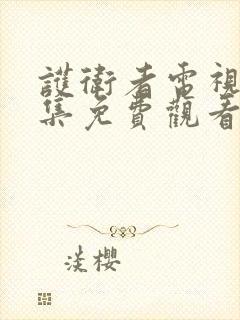 護衛者電視
集免費觀看
淡櫻